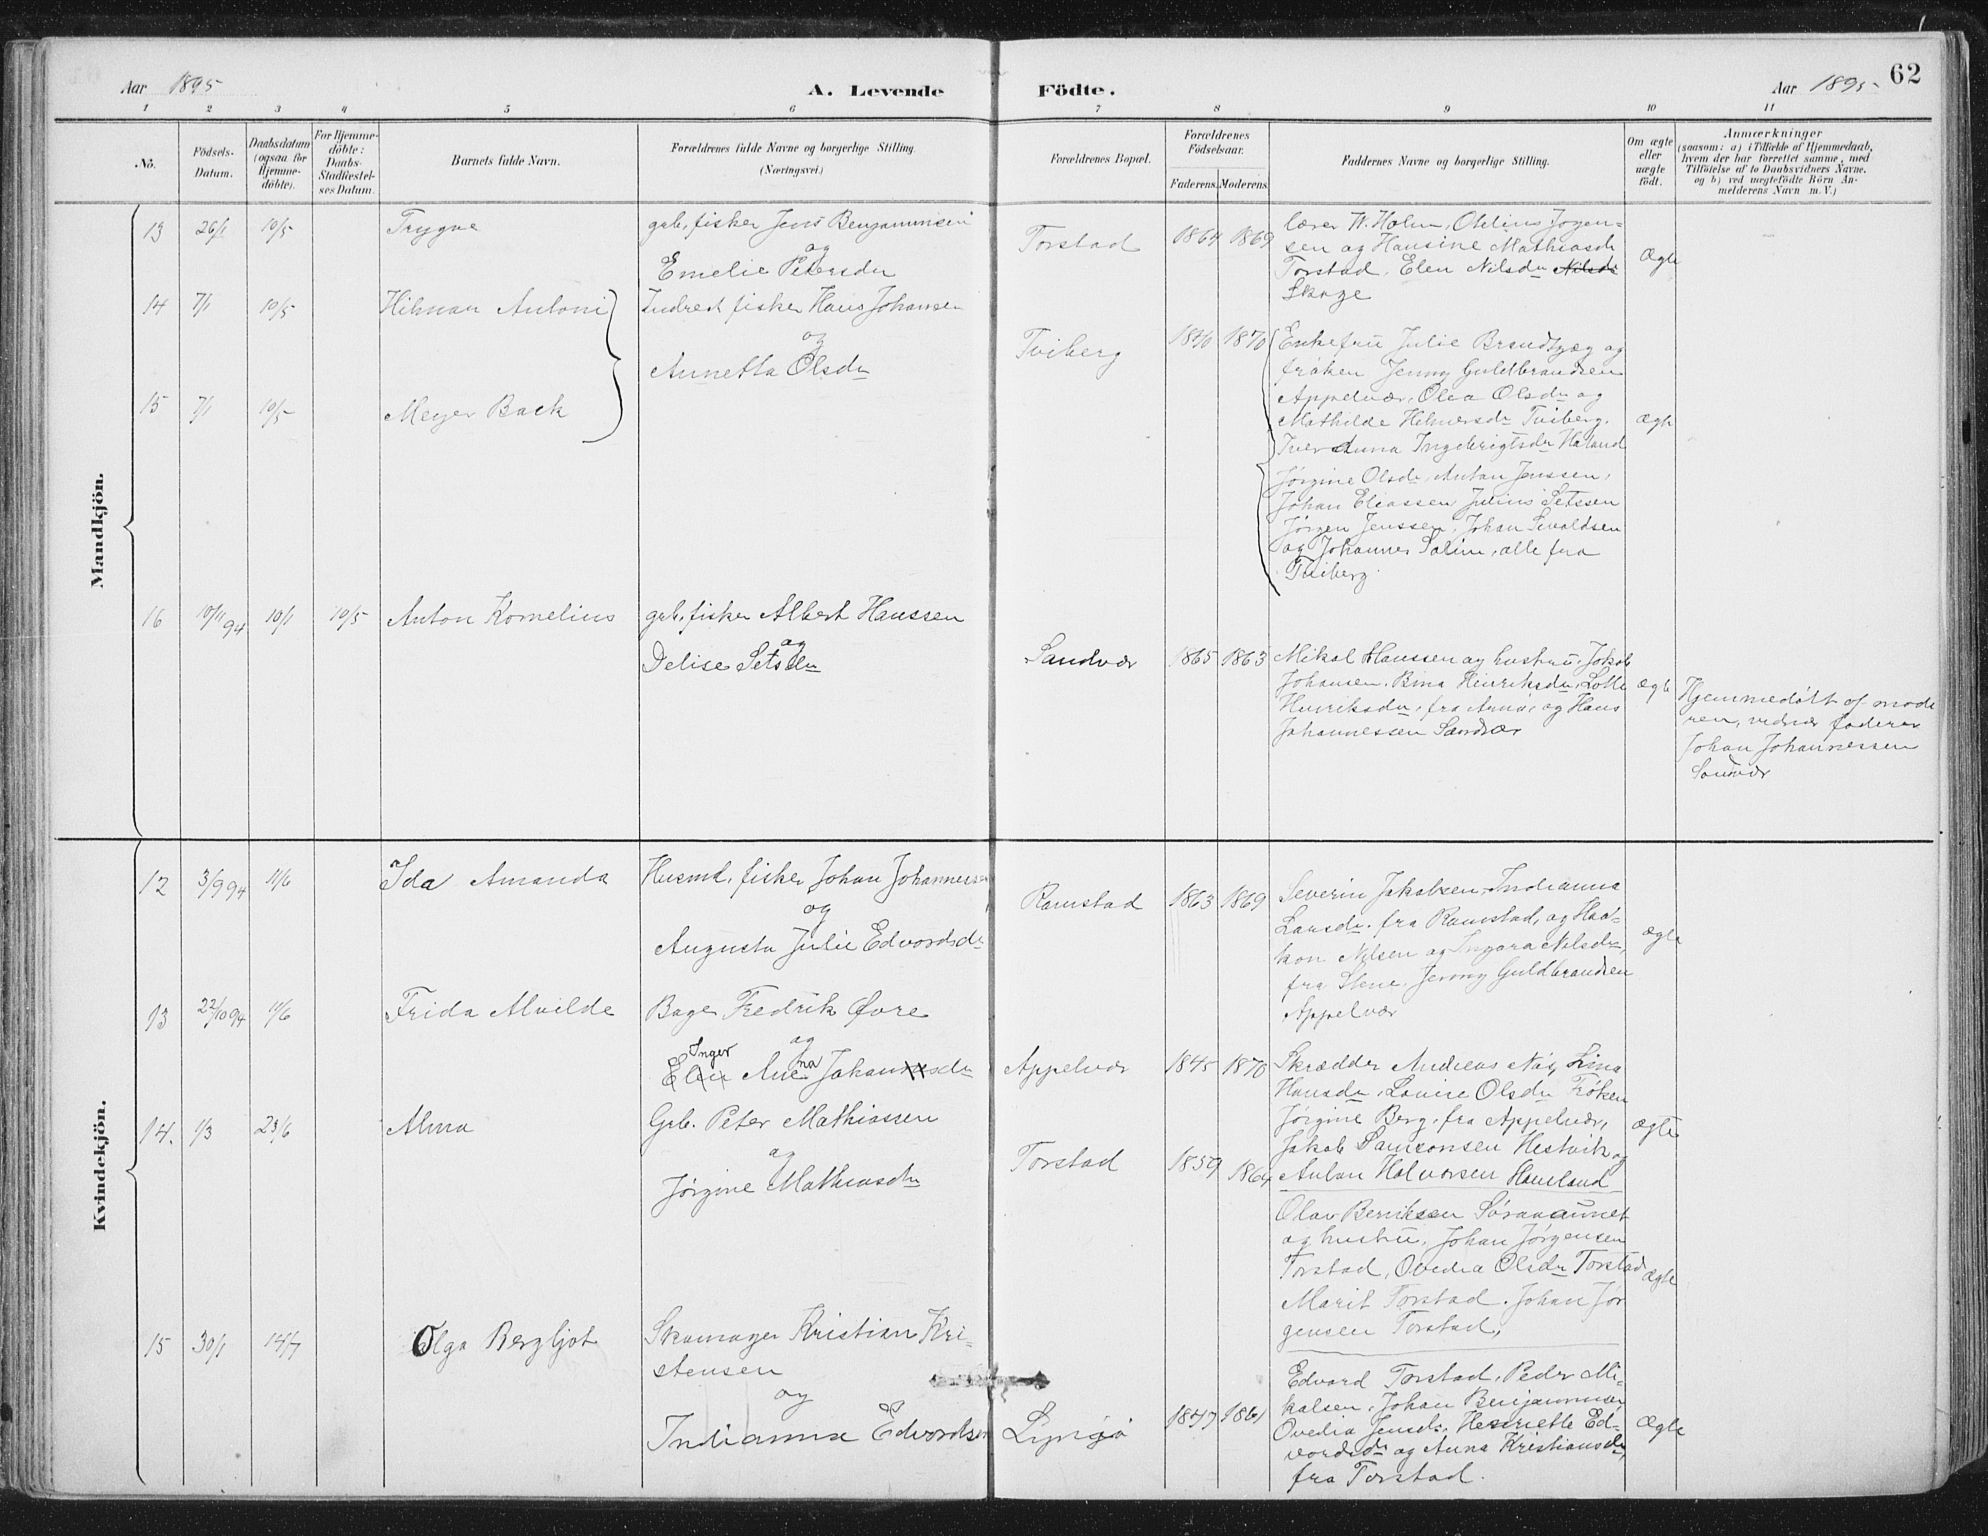 62
Aar 1895
A. Levende Födte.
Aar 1895
1 2 3 4 5 6 7 8 9 10 11
No.
Födsels-Datum.
Daabsdatum (ogsaa for Hjemmedöbte).
For Hjemmedöbte: Daabs-Stadfæstelses Datum.
Barnets fulde Navn.
Forældrenes fulde Navne og borgerlige Stilling. (Næringsvei.)
Forældrenes Bopæl.
Forældrenes Födselsaar.
Faderens. Moderens.
Faddernes Navne og borgerlige Stilling.
Om ægte eller uægte födt.
Anmærkninger
(saasom: a) i Tilfælde af Hjemmedaab, hvem der har forrettet samme, med Tilföielse af to Daabsvidners Navne, og b) ved uægtefödte Börn Anmelderens Navn m. V.)
Mandkjön.
13 26/1 10/5 Trygve
grb., fisker Jens Benjaminsen
og
Emelie Petersdr
Torstad 1864 1869
lærer W. Holm, Odelius Jørgen-
sen og Hansine Mathiasdr
Torstad, Elen Nilsdr Nilsdr
Skage
Ægte
14 7/1 10/5 Hilmar Antoni
Indrest fisker Hans Johansen
og
Annetta Olsdr
15 7/1 10/5 Meyer Back
Tviberg 1840 1870
Enkefru Julie Brandtzæg og
frøken Jenny Guldbrandsen
Appelvær, Olea Olsdr og
Mathilde Hilmersdr Tviberg.
Iver Anna Ingebrigtsdr Haland
Jørgine Olsdr, Anton Jenssen,
Johan Eliassen, Julius Setssen
Jørgen Jenssen, Johan Sivaldsen
og Johannes Salin, alle fra
Tviberg.
ægte
16 10/11 94 10/1 10/5 Anton Kornelius
grb., fisker Albert Hanssen
og
Delise Setsdr
Sandvær 1865 1863
Mikal Hanssen og hustru, Jakob
Johansen, Bina Henriksdr, Lotte
Henriksdr, fra Arnø, og Hans
Johannessen Sandvær
ægte
Hjemmedøbt af mode
ren, vidner faderen
Johan Johannessen
Sandvær
Kvindekjön.
12 3/9 94 11/6 Ida Amanda
Husmd, fisker Johan Johannessen
og
Augusta Julie Edvardsdr
Ramstad 1863 1869
Severin Jakobsen, Indianna
Larsdr. fra Ramstad, og Haa-
kon Nilsen og Ingora Nilsdr,
fra Stene, Jenny Guldbrandsen
Appelvær
ægte
13 22/10 94 11/6 Frida Alvilde
Bager Fredrik Øvre
og
Inger
Elen Anna Johansdr
Appelvær 1845 1870
Skrædder Andreas Nøs, Lina
Hansdr, Lovise Olsdr Frøken
Jørgine Berg, fra Appelvær,
Jakob Samsonsen Hestvik og
Anton Halvorsen Haveland
ægte
14. 1/3 23/6 Alma
Grb. Peter Mathiassen
og
Jørgine Mathiasdr
Torstad 1859 1864
Olav Beriksen Søraaunet
og hustru, Johan Jørgensen
Torstad, Ovedia Olsdr Torstad
Marit Torstad. Johan Jør
gensen Torstad,
Ægte
15 30/1 14/7 Olga Bergljot
Skomager Kristian Kri-
stensen
og
Indianna Edvardsen
1847 1861
Edvard Torstad, Peder Mi-
kalsen, Johan Benjaminsen
Ovedia Jensdr, Henriette Ed-
vardsdr og Anna Kristiansdr,
fra Torstad.
Ægte